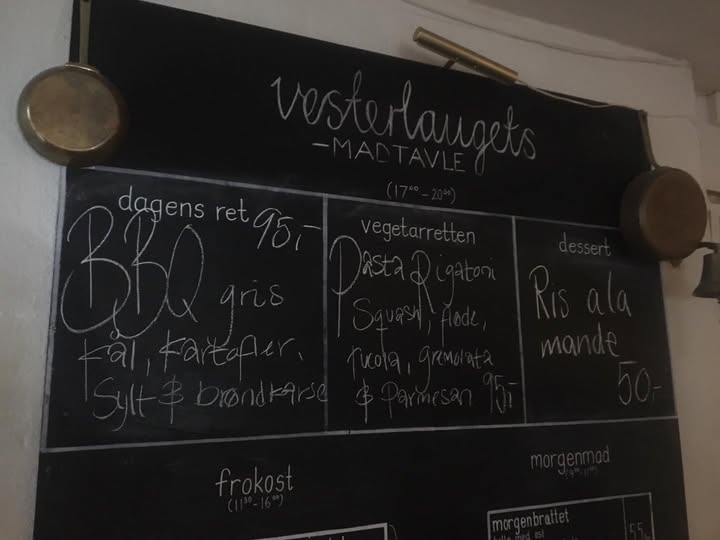 vesterlaugets
-MADTAVLE
(17⁰⁰-20⁰⁰)
dagens ret 95,-
BBQ gris
kål, kartofler,
Sylt & brøndkarse
vegetarretten
Pasta Rigatoni
Squash, fløde,
rucola, gremolata
& Parmesan 95,-
dessert
Ris a la
mande
50,-
frokost
(11³⁰-16⁰⁰)
morgenmad
morgenbrættet
bolle med ost
55,-